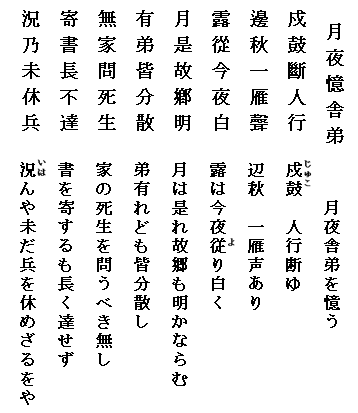 月夜憶舎弟 月夜舎弟を憶う
戍鼓斷人行 戍鼓 人行断ゆ
じゅこ
邊秋一雁聲 辺秋 一雁声あり
露從今夜白 露は今夜従り白く
よ
月是故鄉明 月は是れ故郷も明かならむ
有弟皆分散 弟有れども皆分散し
無家問死生 家の死生を問うべき無し
寄書長不達 書を寄するも長く達せず
況乃未休兵 況んや未だ兵を休めざるをや
いは